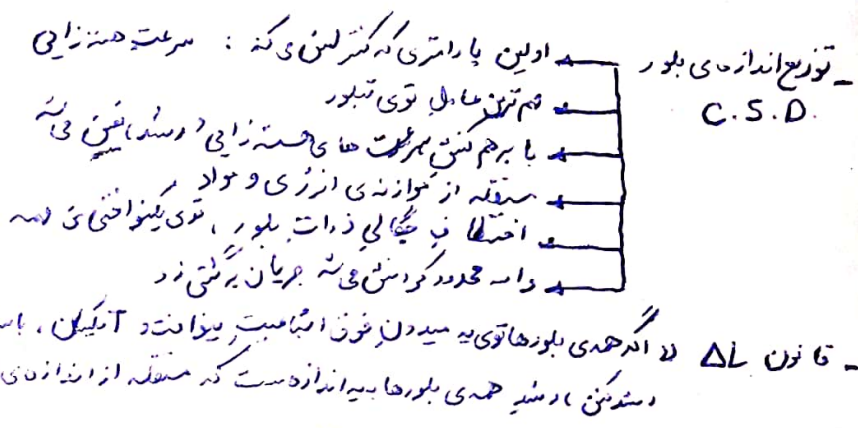 - توزیع اندازه‌ی بلور
C.S.D.
اولین پارامتری که کنترلش می‌کنه : سرعت هسته زایی
مهم ترین عامل توی تبلور
با برهم کنش سرعت های هسته زایی و رشد، تعیین می‌شه
مستقله از موازنه‌ی انرژی و مواد
اختلاف چگالی ذرات بلور، توی یکنواختی
واسه محدود کردنش می‌شه جریان برگشتی زد
- قانون ΔL اگه همه‌ی بلورها توی یه میدون فوق اشباعیت ینواخت و آنیکسان،
رشد کنن، رشد همه‌ی بلورها به یه اندازه ست که مستقله از اندازه‌ی